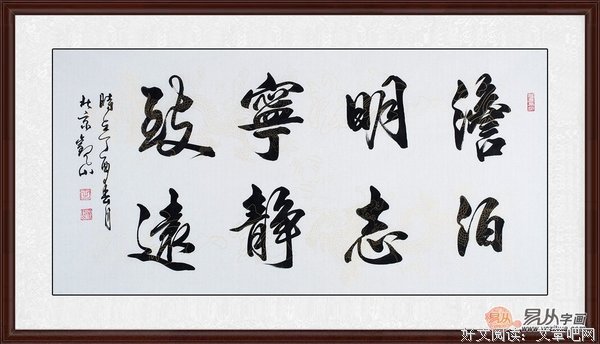 澹泊
明志
寧静
致遠
時在丁酉春月
易从字画
好文阅读：文章吧网